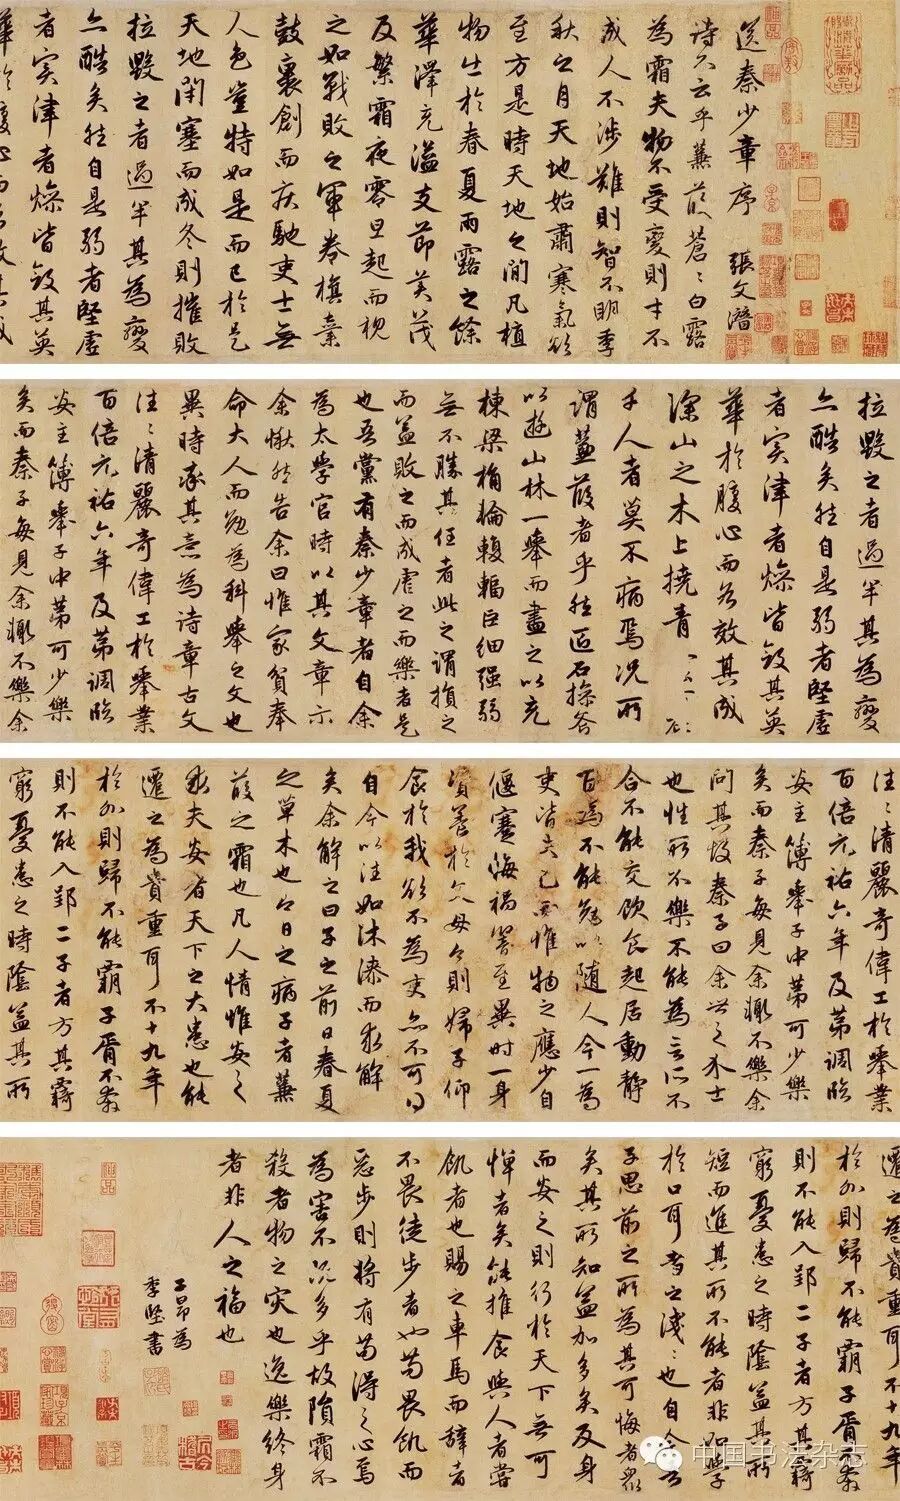 送秦少章序 張文潛
詩不云乎蒹葭蒼〻白露
為霜夫物不受變則才不
成人不涉難則智不明季
秋之月天地始肅寒氣欲
至方是時天地之間凡植
物出於春夏雨露之餘
華澤充溢支節美茂
及繁霜夜零旦起而視
之如戰敗之軍卷旗棄
鼓裹創而疾馳吏士無
人色豈特如是而已於是
天地閉塞而成冬則摧敗
拉毀之者過半其為變
亦酷矣然自是弱者堅虛
者實津者燥皆斂其英
華於腹心而各效其成
拉毀之者過半其為變
亦酷矣然自是弱者堅虛
者實津者燥皆斂其英
華於腹心而各效其成
深山之木上撓青
千人者莫不病焉況所
謂蒹葭者乎然匠石操斧
以遊山林一舉而盡之以充
棟梁桷輪輹輻巨細强弱
無不勝其任者此之謂損之
而益敗之而成虐之而樂者是
也吾黨有秦少章者自余
為太學官時以其文章示
余愀然告余曰惟家貧奉
命大人而勉為科舉之文也
異時率其意為詩章古文
往〻清麗奇偉工於舉業
百倍元祐六年及第調臨
安主簿舉子中第可少樂
矣而秦子每見余輒不樂余
往〻清麗奇偉工於舉業
百倍元祐六年及第調臨
安主簿舉子中第可少樂
矣而秦子每見余輒不樂余
問其故秦子曰余世之介士
也性所不樂不能為言所不
合不能交飲食起居動靜
百為不能勉以隨人今一為
吏皆失己而惟物之應少自
偃蹇悔禍響至異時一身
資養於父母今則婦子仰
食於我欲不為吏亦不可得
自今以往如沐漆而求解
矣余解之曰子之前日春夏
之草木也今日之病子者蒹
葭之霜也凡人情惟安之
求夫安者天下之大患也能
遷之為貴重耳不十九年
於外則歸不能霸子胥不奔
則不能入郢二子者方其羇
窮憂患之時陰益其所
遷之為貴重耳不十九年
於外則歸不能霸子胥不奔
則不能入郢二子者方其羇
窮憂患之時陰益其所
短而進其所不能者非如學
於口耳者之淺〻也自今吾
子思前之所為其可悔者眾
矣其所知益加多矣反身
而安之則行於天下無可
憚者矣能推食與人者嘗
飢者也賜之車馬而辭者
不畏徒步者也苟畏飢而
惡步則將有苟得之心焉
為害不既多乎故隕霜不
殺者物之災也逸樂終身
者非人之福也
子昂為
季堅書
中国书法杂志